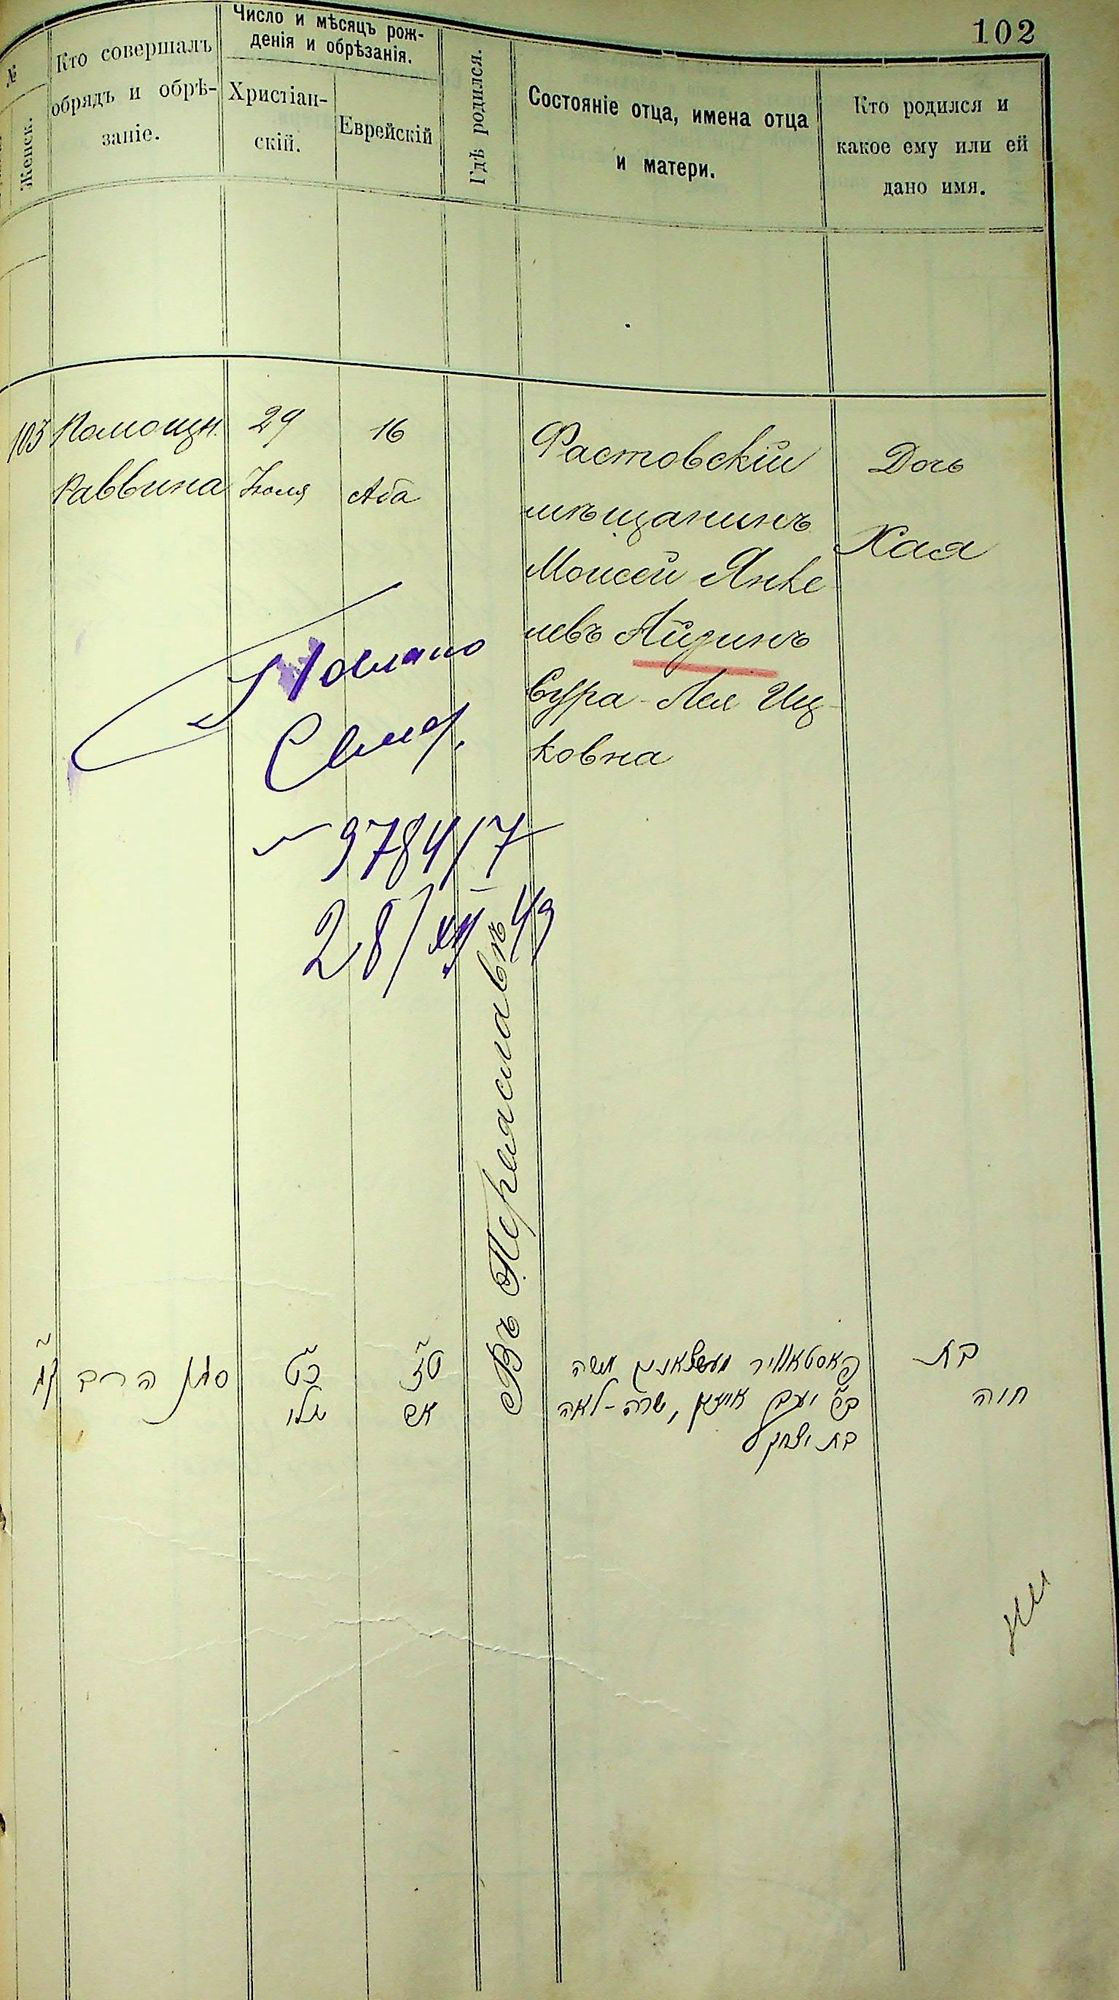 102
№
Женск.
Кто совершалъ
обрядъ и обрѣ-
заніе.
Число и мѣсяцъ рож-
денія и обрѣзанія.
Христіан-
скій.
Еврейскій
Гдѣ родился.
Состояніе отца, имена отца
и матери.
Кто родился и
какое ему или ей
дано имя.
103
Помощн.
Раввина
29
Июля
16
Аба
Въ Переяславѣ
Фастовскій
мѣщанинъ
Моисей Янке
левъ Айзинъ
Сура-Лея Иц-
ковна
Дочь
Хая
9784/7
28/XII 49
סגן הרב
כ״ט
יולי
ט״ז
אב
משה
שרה-לאה
בת יצחק
בת
חיה